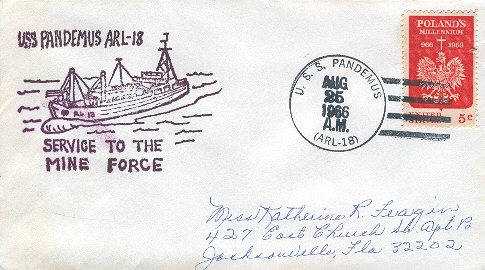 USS PANDEMUS ARL-18
ARL 18
SERVICE TO THE
MINE FORCE
U.S.S. PANDEMUS
AUG
25
1966
A.M.
(ARL-18)
POLAND'S
MILLENNIUM
966 1966
UNITED
STATES 5c
Miss Katherine R. Feagin
427 East Church St. Apt B
Jacksonville, Fla 32202